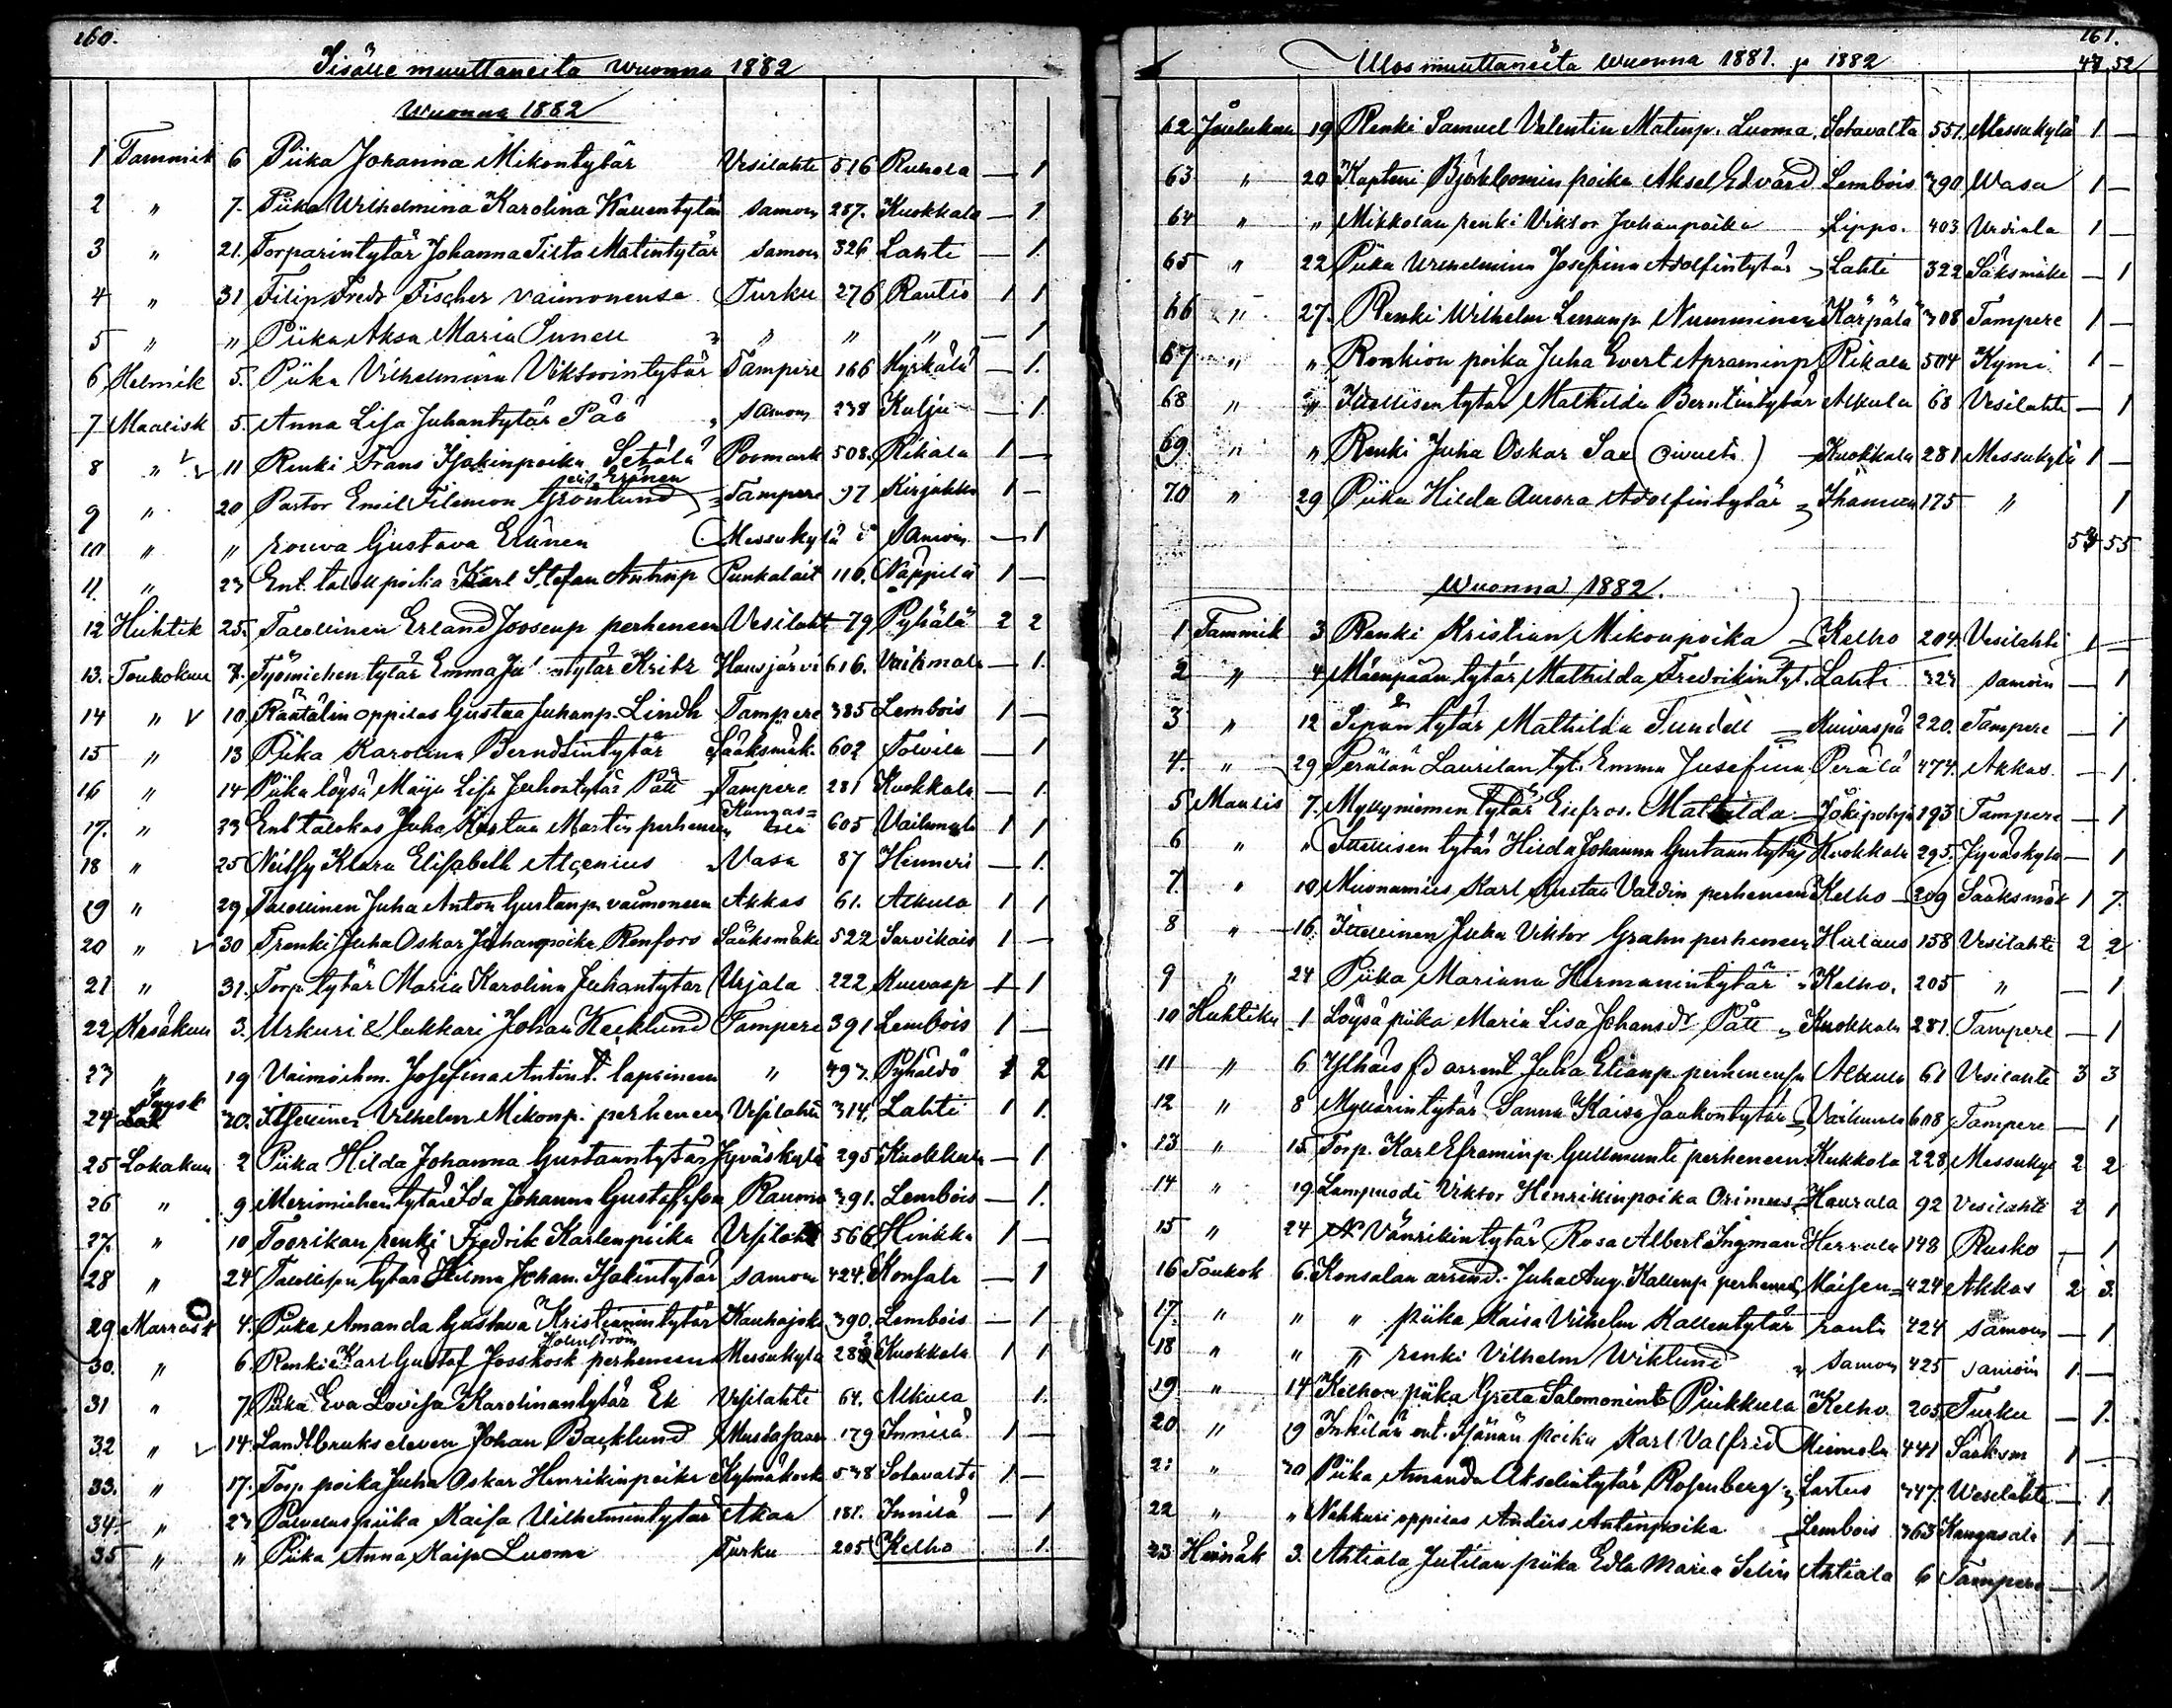 160.
Sisälle muuttaneita wuonna 1882
Wuonna 1882
1 Tammik 6 Piika Johanna Mikontytär Vesilahti 516 Ruhola — 1
2 " 7. Piika Wilhelmina Karolina Kallentytär samoin 287. Kuokkala — 1.
3 " 21. Torparintytär Johanna Tilta Matintytär samoin 326 Lahti — 1.
4 " 31 Filip Fredr Fischer vaimonensa Turku 276 Rautio 1 1
5 " " Piika Aksa Maria Sunell " " " — 1
6 Helmik 5. Piika Vilhelmiina Viktorintytär Tampere 166 Hyrkälä — 1.
7 Maalisk 5. Anna Lisa Juhantytär Pää samoin 238 Kulju — 1.
8 " 11 Renki Frans Isakinpoika Setälä Poomark 508. Rikala 1 —
9 " 20 Pastor Emil Filemon Grönlund Eränen Tampere 97 Kirjakka 1 —
10 " " rouva Gustava Eränen Messukylä samoin — 1
11. " 23 Ent. talollpoika Karl Stefan Antinp Punkalait 110. Nappila 1 —
12 Huhtik 25. Talollinen Erland Joosenp perheneen Vesilaht 79 Pyhälä 2 2
13. Toukokuu 7. Työmiehen tytär Emma Ju ntytär Kribr Hausjärvi 616. Vaihmala — 1.
14 " V 10 Räätälin oppilas Gustaa Juhanp. Lindh Tampere 385 Lembois 1 —
15 " 13 Piika Karolina Berndtintytär Sääksmäk. 602 Tolvila — 1
16 " 14 Piika löysä Maija Lisa Juhontytär Pätt Tampere 281 Kuokkala — 1.
17. " 23 Ent talokas Juha Kustaa Martin perheneen Kangasala 605 Vaihmala 1 1
18 " 25 Neitsy Klara Elisabeth Alcenius Vasa 87 Hinneri — 1.
19 " 29 Talollinen Juha Anton Gustanp. vaimoneen Akkas 61. Alkula 1 1
20 " V 30 Trenki Juha Oskar Juhanpoika Renfors Sääksmäki 522 Sarvikais 1 —
21 " 31. Torp. tytär Maria Karolina Juhantytär Urjala 222 Kuivasp 1 1
22 Kesäkuu 3. Urkuri & lukkari Johan Kecklund Tampere 391 Lembois 1 —
23 " 19 Vaimoihm. Josefina Antint. lapsineen " 497. Pyhäldö 1 2
24 Syysk 30. Itsellinen Vilhelm Mikonp. perheneen Vesilahti 314. Lahti 1 1.
25 Lokakuu 2 Piika Hilda Johanna Gustaantytär Jyväskylä 295 Kuokkala — 1
26 " 9 Merimiehen tytär Ida Johanna Gustafsson Rauma 391. Lembois — 1.
27. " 10 Toorikan renki Fredrik Karlenpoika Vesilahti 566 Hinkka 1 —
28 " 24 Talollisen tytär Hilma Johan. Isakintytär samoin 424. Konsala — 1
29 Marrask 4. Piika Amanda Gustava Kristianintytär Kauhajoki 390. Lembois — 1
30. " 6. Renki Karl Gustaf Josskosk Holmström perheneen Messukylä 282 Kuokkala 1 1
31 " 7. Piika Eva Lovisa Karolinantytär Ek Vesilahti 64. Alkula 1.
32 " V 14. Landtbruks eleven Johan Backlund Mustasaari 179 Innilä 1 —
33. " 17. Torp. poika Juha Oskar Henrikinpoika Kylmäkosk 538 Sotavalta 1. —
34. " 23 Palveluspiika Kaisa Vilhelmintytär Akaa 181. Innilä — 1
35 " " Piika Anna Kaisa Luoma Turku 205 Kelho 1.
161.
Ulosmuuttaneita wuonna 1881. ja 1882 47 52
62 Joulukuu 19 Renki Samuel Valentin Matinp. Luoma Sotavalta 551. Messukylä 1 —
63 " 20 Kapteni Björkbomin poika Aksel Edvard Lembois 390 Wasa 1 —
64 " " Mikkolan renki Viktor Juhanpoika Lippo. 403 Urdiala 1 —
65 " 22 Piika Wilhelmina Josefina Adolfintytär Lahti 322 Säksmäke — 1
66 " 27. Renki Wilhelm Numminen Kärpälä 308 Tampere 1 —
67 " " Ronkion poika Juha Evert Apraminp Rikala 504 Kymi. 1 —
68 " " Itsellisen tytär Mathilda Berntintytär Alkula 68 Vesilahti — 1
69 " " Renki Juha Oskar Sae Kuokkala 281 Messukylä 1 —
70 " 29 Piika Hilda Aurora Adolfintytär 175 " 1
54 55
Wuonna 1882.
1 Tammik 3 Renki Kristian Mikonpoika Kelho 204. Vesilahti 1 —
2 " 4 Mäenpään tytär Mathilda Fredrikintyt. Lahti 323 samoin — 1
3 " 12 Sipän tytär Mathilda Sundell Kuivaspä 220. Tampere — 1
4. " 29 Perälän Laurilan tyt. Emma Josefina Perälä 474. Akkas — 1
5 Maalis 7. Myllyniemen tytär Eufros. Mathilda Jokipohja 193 Tampere — 1
6 " " Itsellisen tytär Hilda Johanna Gustaantytär Kuokkala 295. Jyväskylä — 1
7. " 10 Muonamies Karl Kustaa Valdin perheneen Kelho 209 Sääksmäk 1 7.
8 " 16. Itsellinen Juha Viktor Grahn perheneen Hulaus 158 Vesilahti 2 2
9 " 24 Piika Mariana Hermanintytär Kelho. 205 " — 1
10 Huhtiku 1 Löysä piika Maria Lisa Johansdr Pätt Kuokkala 281. Tampere — 1
11 " 6 arrent Juha Elianp. perheneensa Alkula 61 Vesilahti 3 3
12 " 8 Myllärintytär Sanna Kaisa Jaakontytär Vaihmala 608 Tampere — 1
13 " 15 Torp. Karl Eframinp. Gullmunte perheneen Kukkola 228 Messukyl 2 2
14 " 19. Lampuodi Viktor Henrikinpoika Orimus Haurala 92 Vesilahti 2 1
15 " 24 Vänrikin tytär Rosa Albert. Ingman Herrala 148 Rusko — 1
16 Toukok 6. Konsalan arrend. Juha Aug. Kallenp. perheneen Moisen= 424 Akkas 2 3.
17. " " " piika Kaisa Vilhelm Kallentytär ranta 424 samoin — 1
18 " " " renki Vilhelm Wiklund samoin 425 samoin 1. —
19 " 14 Kelhon piika Greta Salomonint. Puikkula Kelho 205 Turku — 1.
20 " 19 Inkilän ent. Isännän poika Karl Valfrid Miemola 441 Sääksm 1 —
21 " 30 Piika Amanda Akselintytär Rosenberg Lastus 347. Weselahti — 1.
22 " " Nahkuri oppilas Anders Antinpoika Lembois 363 Kangasala 1 —
23 Heinäk 3. Ahtiala Jutilan piika Edla Maria Selin Ahtiala 6 Tampere — 1